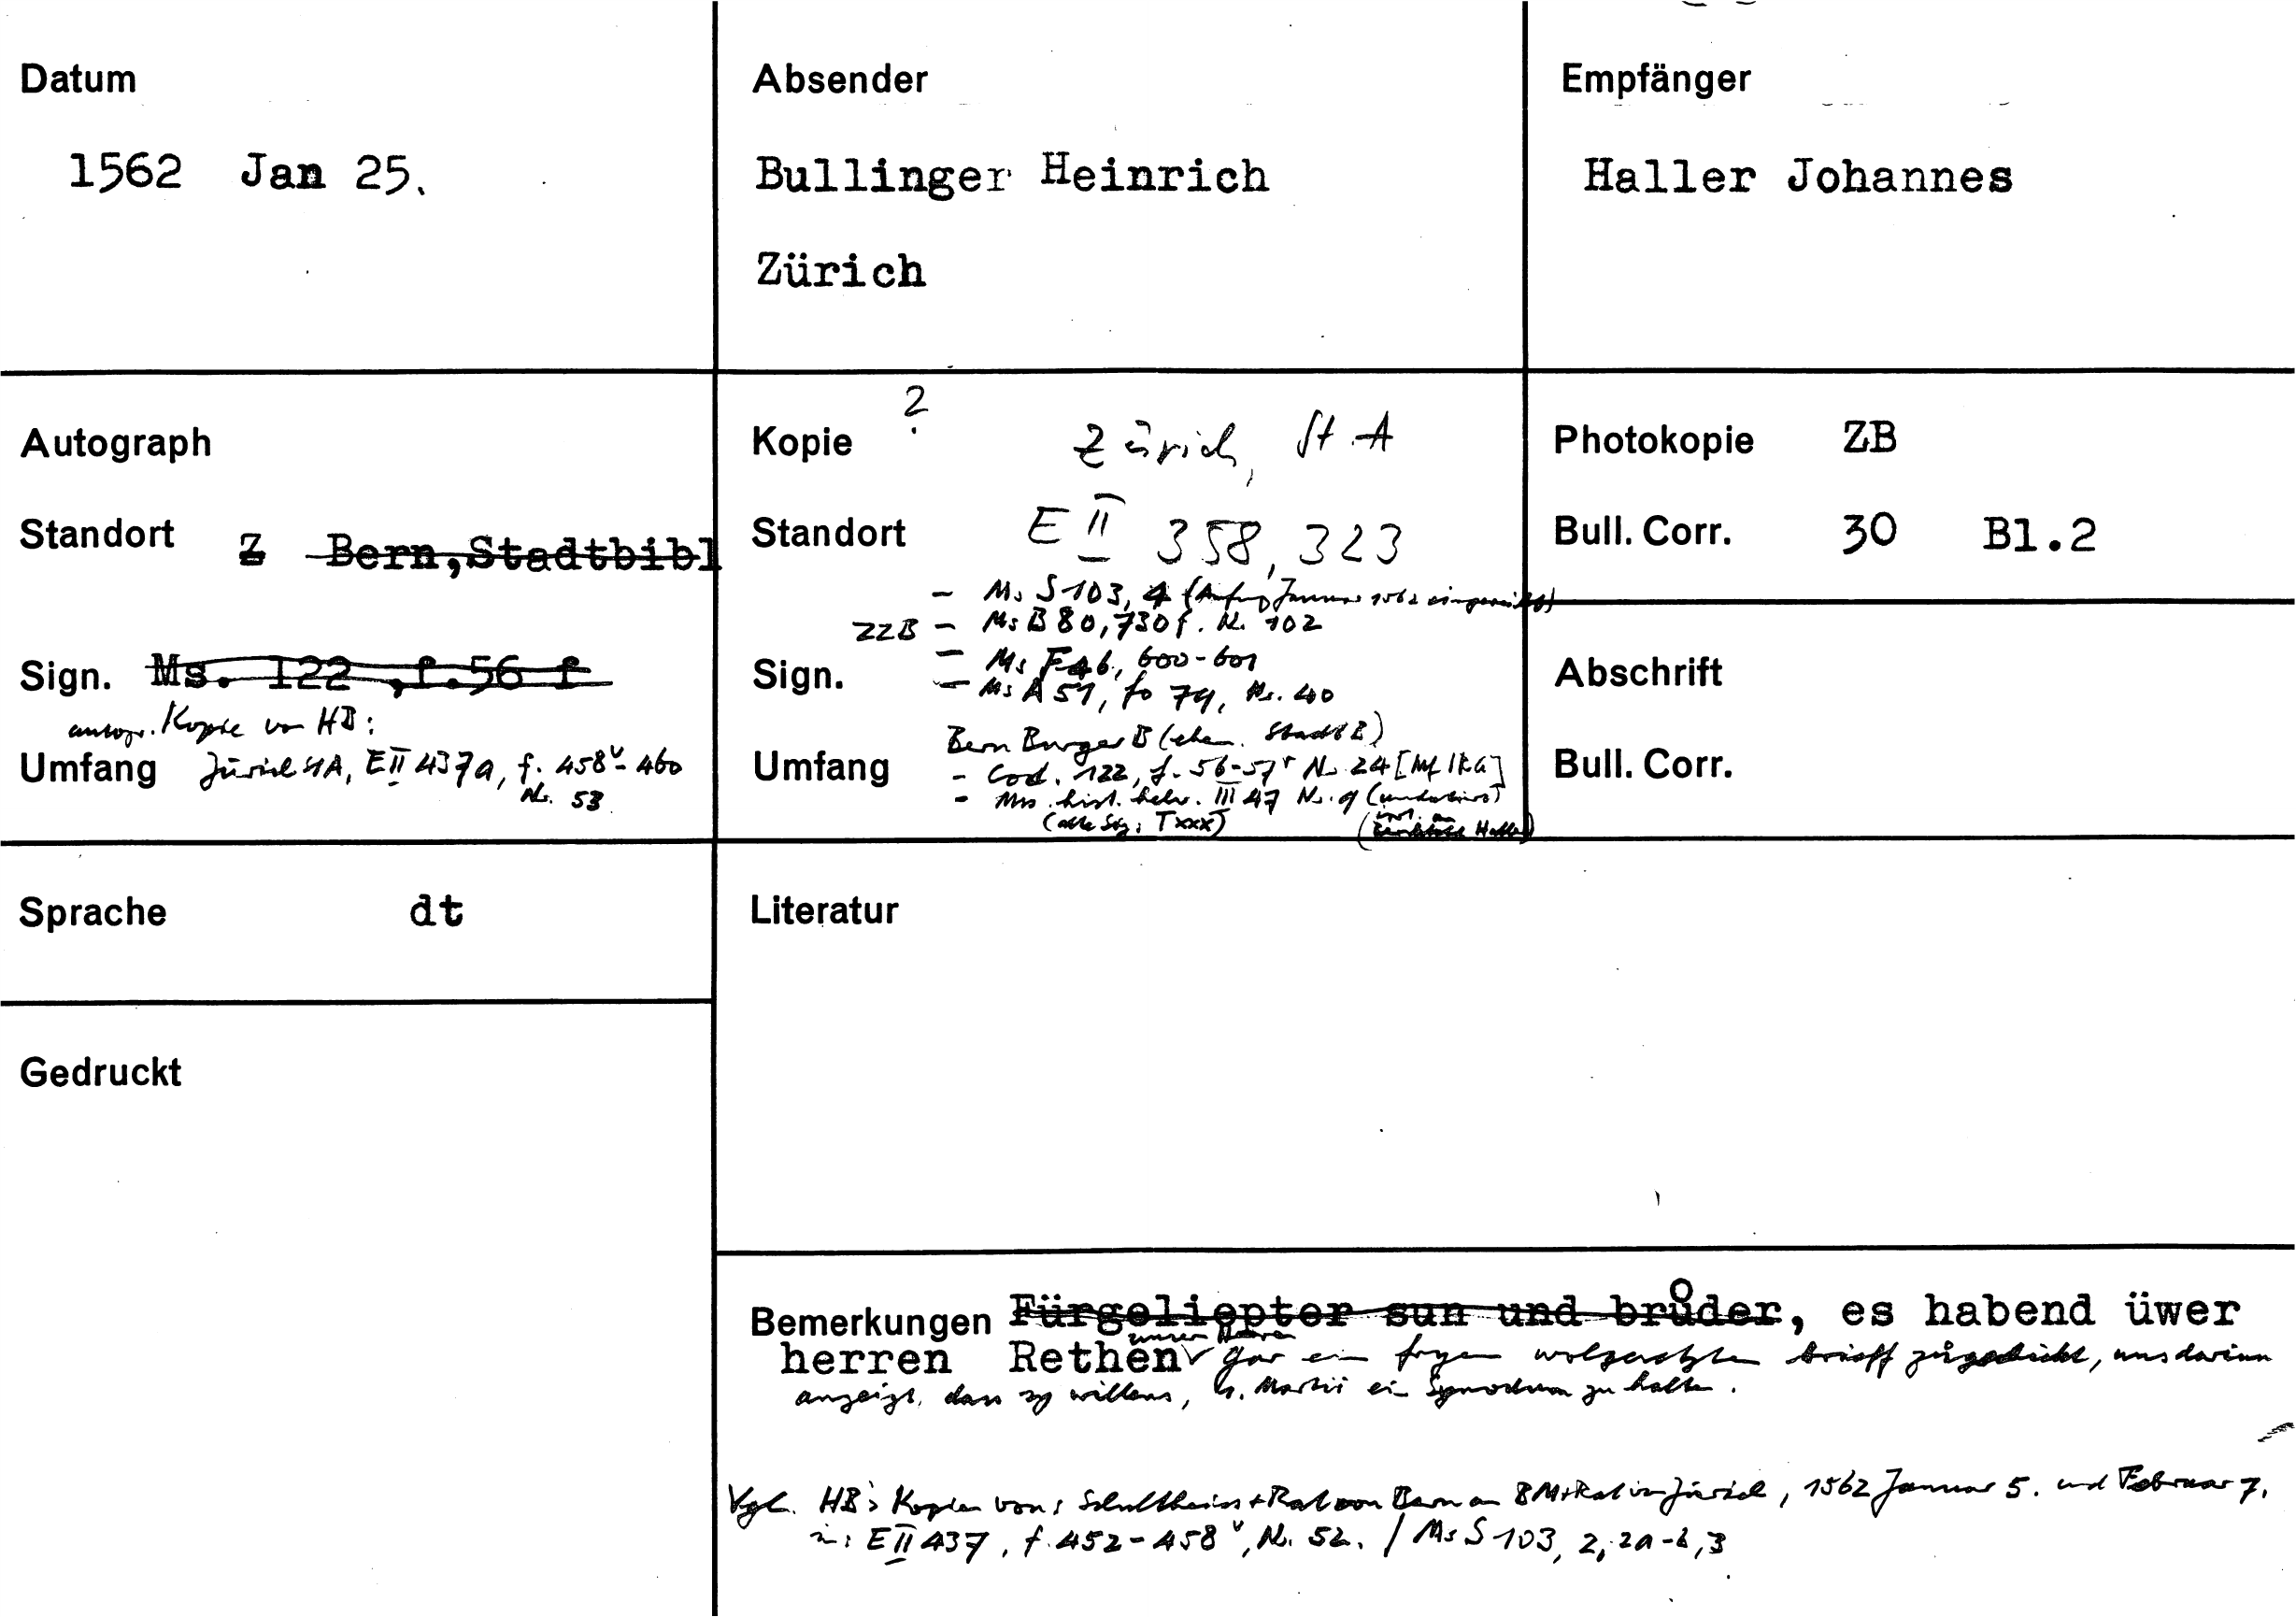 Datum
1562 Jan 25.
Absender
Bullinger Heinrich
Zürich
Empfänger
Haller Johannes
Autograph
Standort Z Bern,Stadtbibl
Sign. Ms. 122 ,f.56 f
autogr. Kopie von HB:
Umfang Zürich StA, E II 437a, f. 458v-460
Nr. 53.
Kopie ? Zürich, St.A
Standort E II 358, 323
- Ms S 103, 4 (Anfang Januar 1562 eingereiht)
ZZB - Ms B 80, 730f. Nr. 102
Sign. - Ms F 46, 600-601
- Ms A 51, fo 79, Nr. 40
Bern Burger B (ehem. Stadt B)
Umfang - Cod. 122, f. 56-57r Nr. 24 [Mf IRG]
- Mss. hist. helv. III 47 Nr. 9 (undatiert)
(alte Sig: Txxx) Haller)
Photokopie ZB
Bull. Corr. 30 Bl.2
Abschrift
Bull. Corr.
Sprache dt
Literatur
Gedruckt
Bemerkungen Fürgeliepter sun und brůder, es habend üwer
unsern Herren
herren Rethen gar ein wolgesetzten brieff zůgschickt, uns darinn
anzeigt, dass sy willens, Martii ein Synodum zu halten.
Vgl. HB's Kopien von: Schultheiss + Rat von Bern an BM+Rat in Zürich, 1562 Januar 5. und Februar 7.
in: E II 437, f. 452-458v, Nr. 52. / Ms S 103, 2, 2a-b, 3